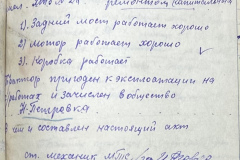 ремонтом капитальном
1) Задний мост работает хорошо
2) мотор работает хорошо
3) Коробка работает
Трактор пригоден к эксплоатации на
работах и зачислен в общество
Н-Петровка.
чем и составлен настоящий акт
ст. механик МТС